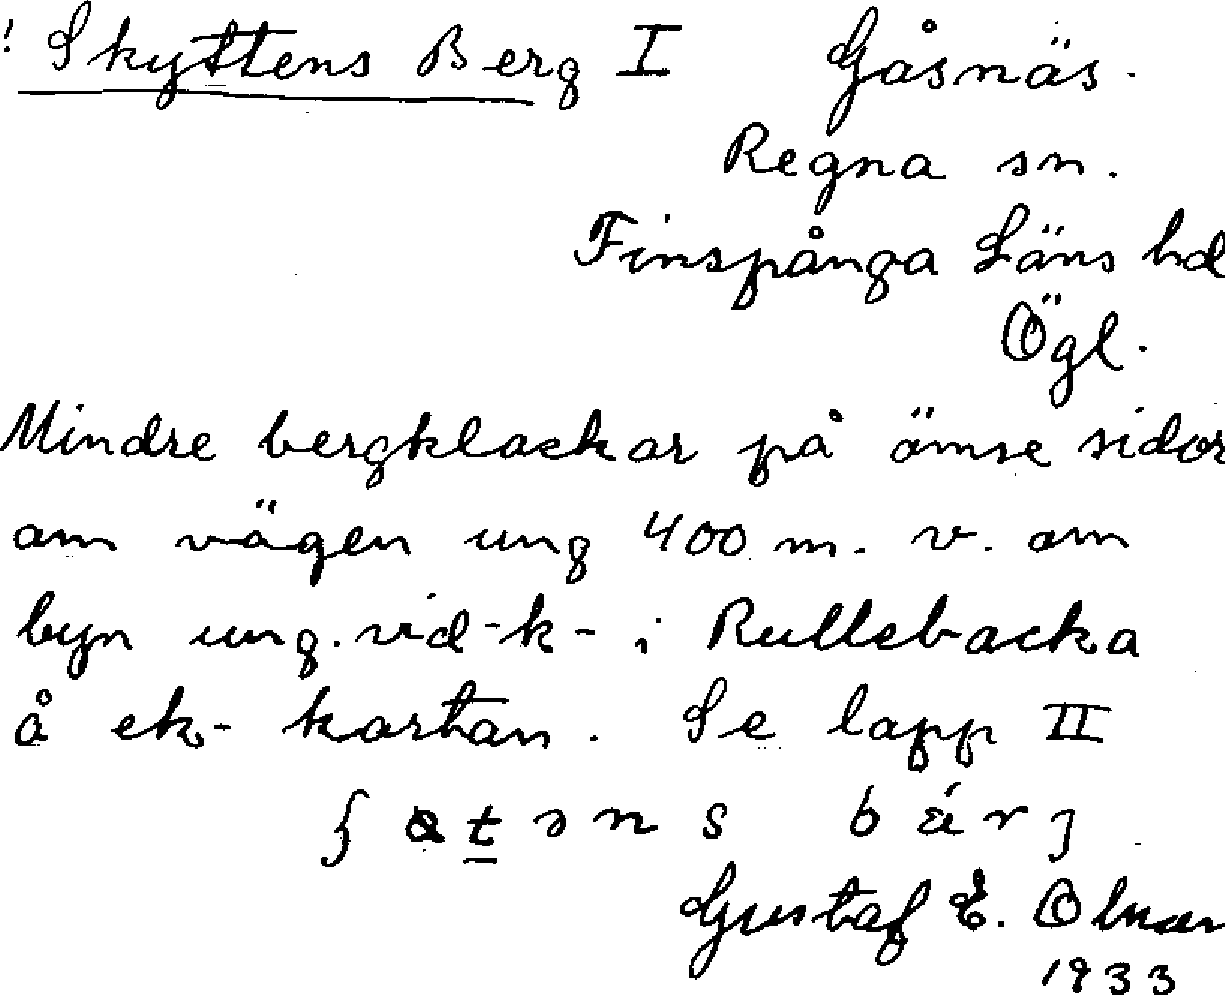 ! Skyttens Berg I Gåsnäs.
Regna sn.
Finspånga Läns hd
Ögl.
Mindre bergklackar på ömse sidor
om vägen ung 400 m. v. om
byn ung. vid -k- i Rullebacka
å ek- kartan. Se lapp II
bärj
Gustaf E.
1933